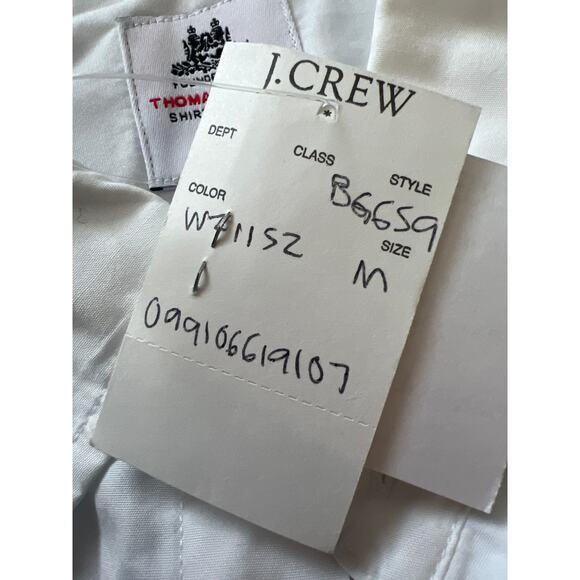 THOMA
SHIR
J.CREW
DEPT CLASS STYLE
B6659
COLOR SIZE
W71152 M
099106619107